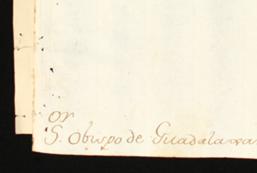 or
S. Obispo de Guadalaxa